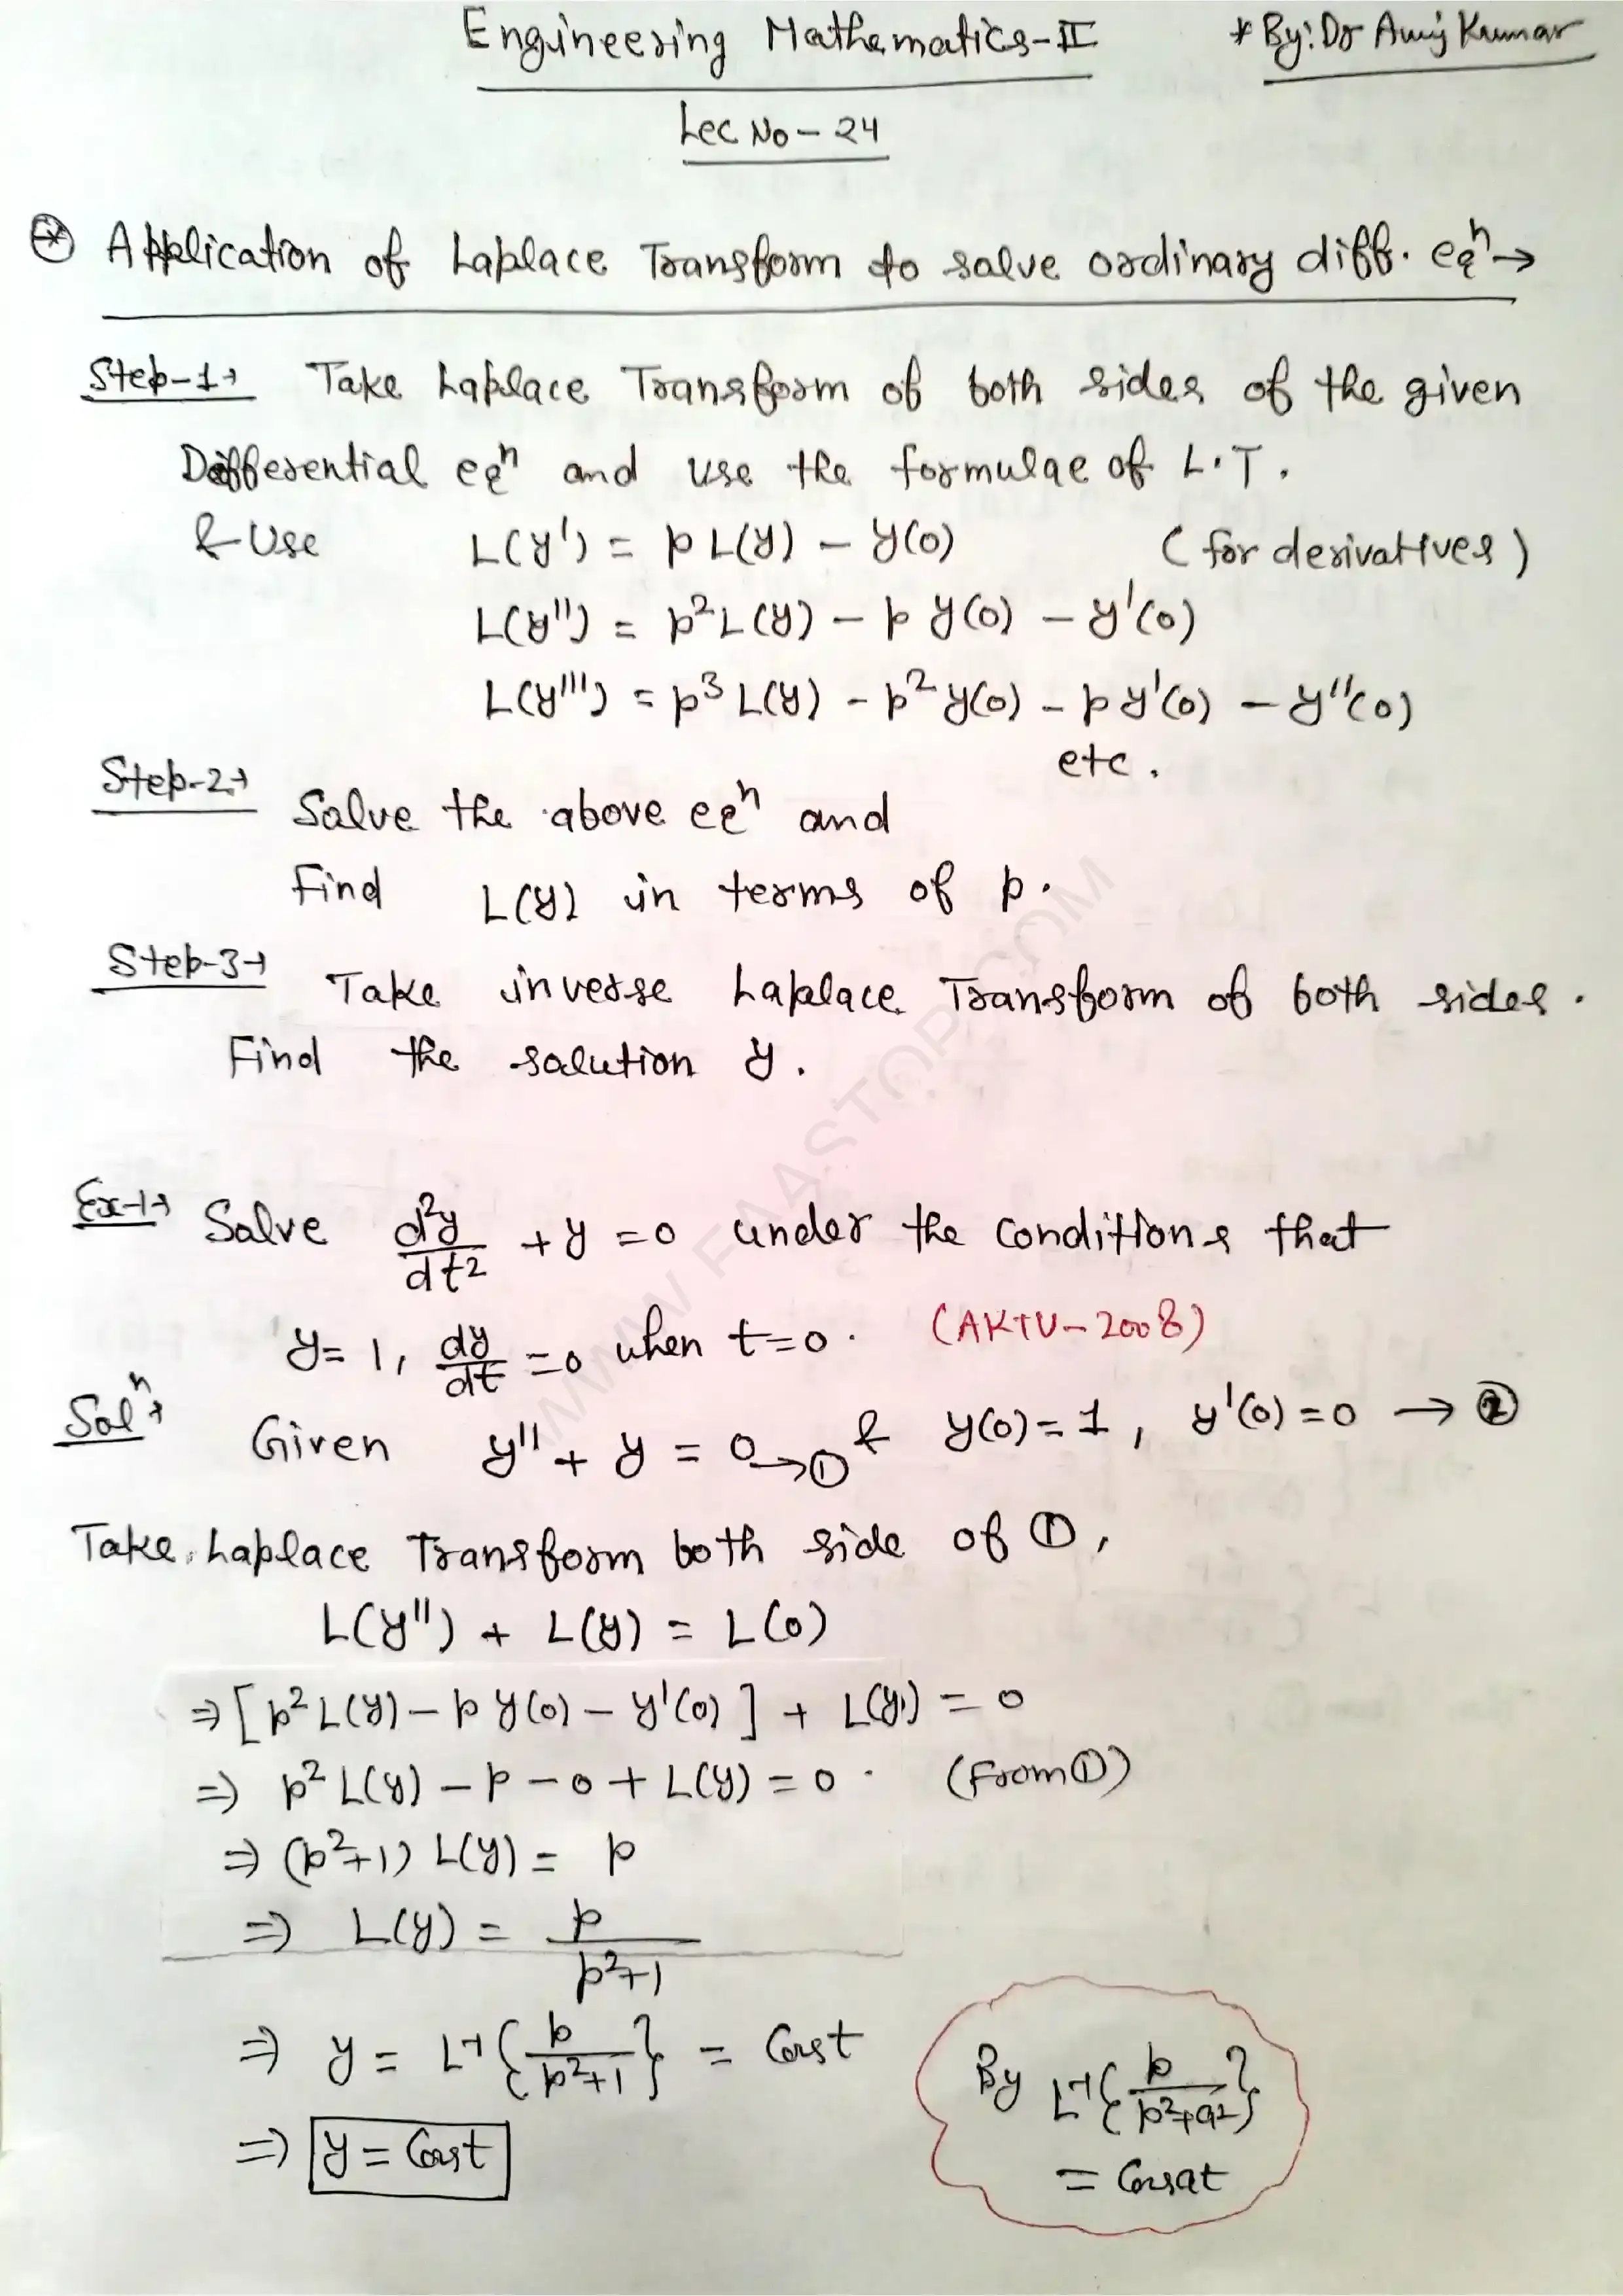 Engineering Mathematics-II
*By: Dr Anuj Kumar
Lec No - 24
Application of Laplace Transform to solve ordinary diff. eqⁿ →
Step-1→ Take Laplace Transform of both sides of the given
Differential eqⁿ and use the formulae of L.T.
& Use L(y') = p L(y) - y(0) (for derivatives)
L(y'') = p² L(y) - p y(0) - y'(0)
L(y''') = p³ L(y) - p² y(0) - p y'(0) - y''(0)
etc.
Step-2→ Solve the above eqⁿ and
Find L(y) in terms of p.
Step-3→ Take inverse Laplace Transform of both sides.
Find the solution y.
Ex-1→ Solve d²y/dt² + y = 0 under the conditions that
y = 1, dy/dt = 0 when t = 0. (AKTU-2008)
Solⁿ→ Given y'' + y = 0 → ① & y(0) = 1, y'(0) = 0 → ②
Take Laplace Transform both side of ①,
L(y'') + L(y) = L(0)
⇒ [p² L(y) - p y(0) - y'(0)] + L(y) = 0
⇒ p² L(y) - p - 0 + L(y) = 0. (From ①)
⇒ (p²+1) L(y) = p
⇒ L(y) = p/(p²+1)
⇒ y = L⁻¹{p/(p²+1)} = Cost
⇒ y = Cost
By L⁻¹{p/(p²+a²)}
= Cosat
WWW.FAASTOP.COM